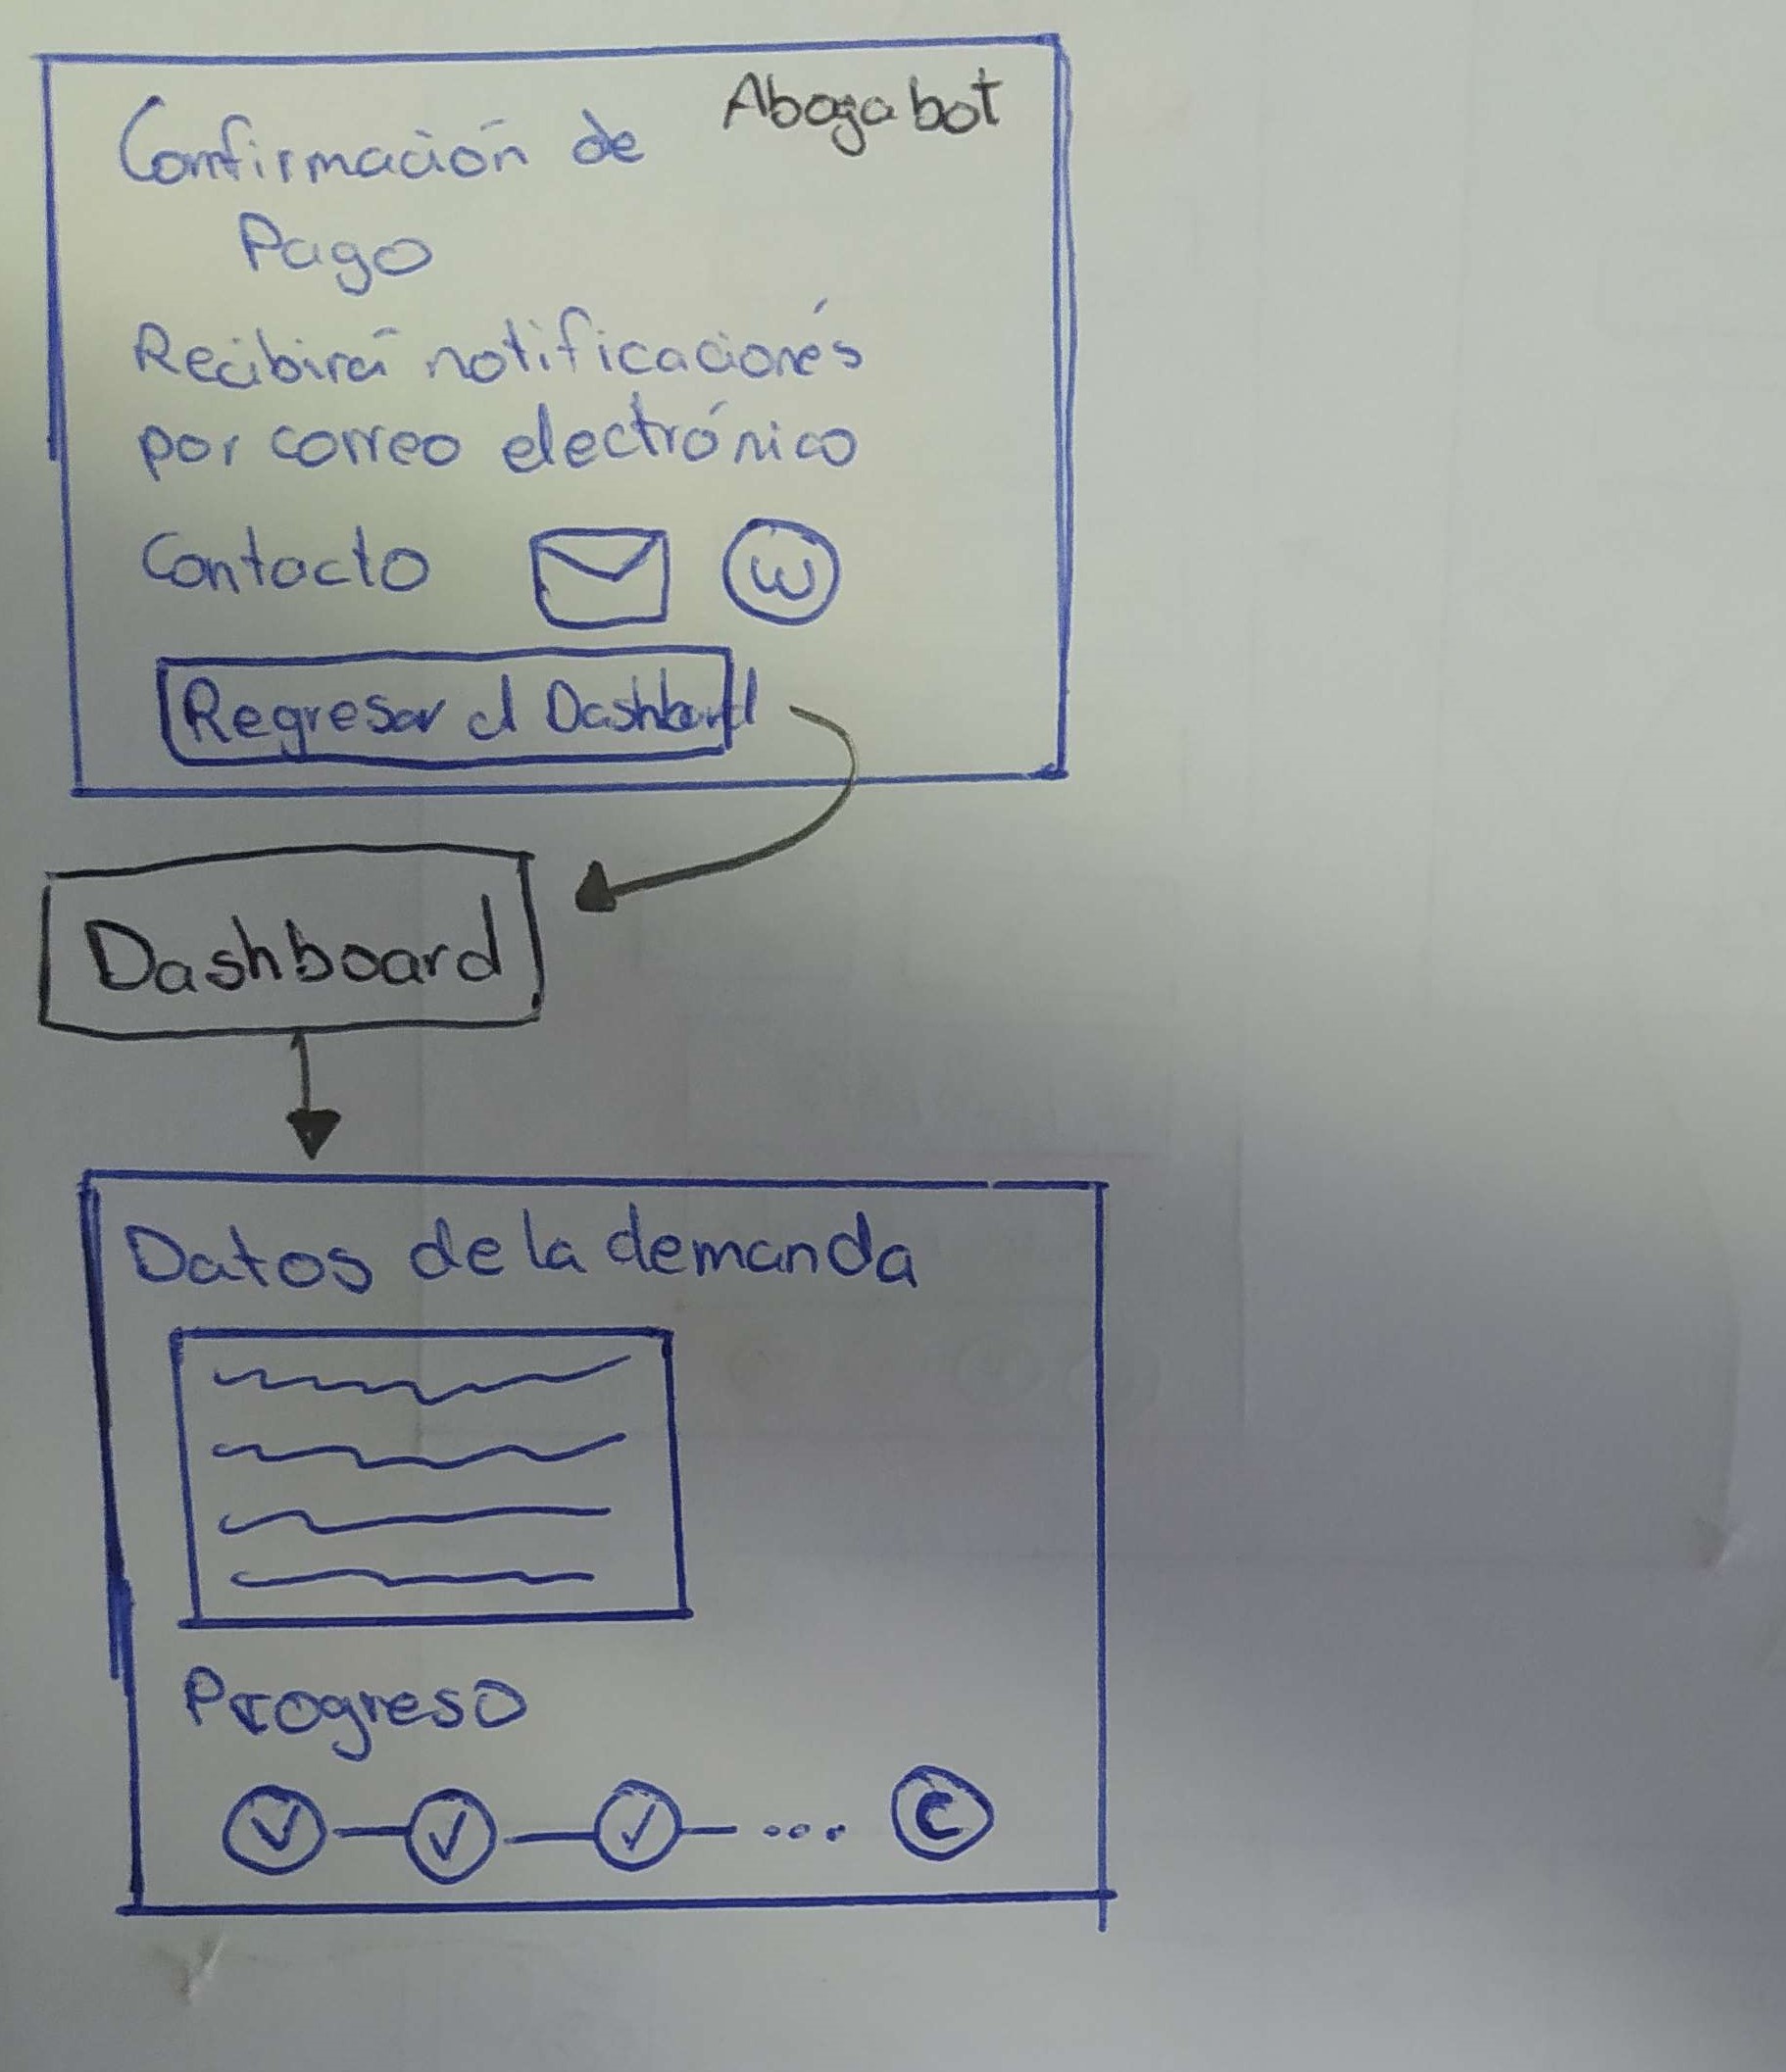 Abogabot
Confirmación de
Pago
Recibirá notificaciones
por correo electrónico
Contacto
W
Regresar al Dashboard
Dashboard
Datos de la demanda
Progreso
C